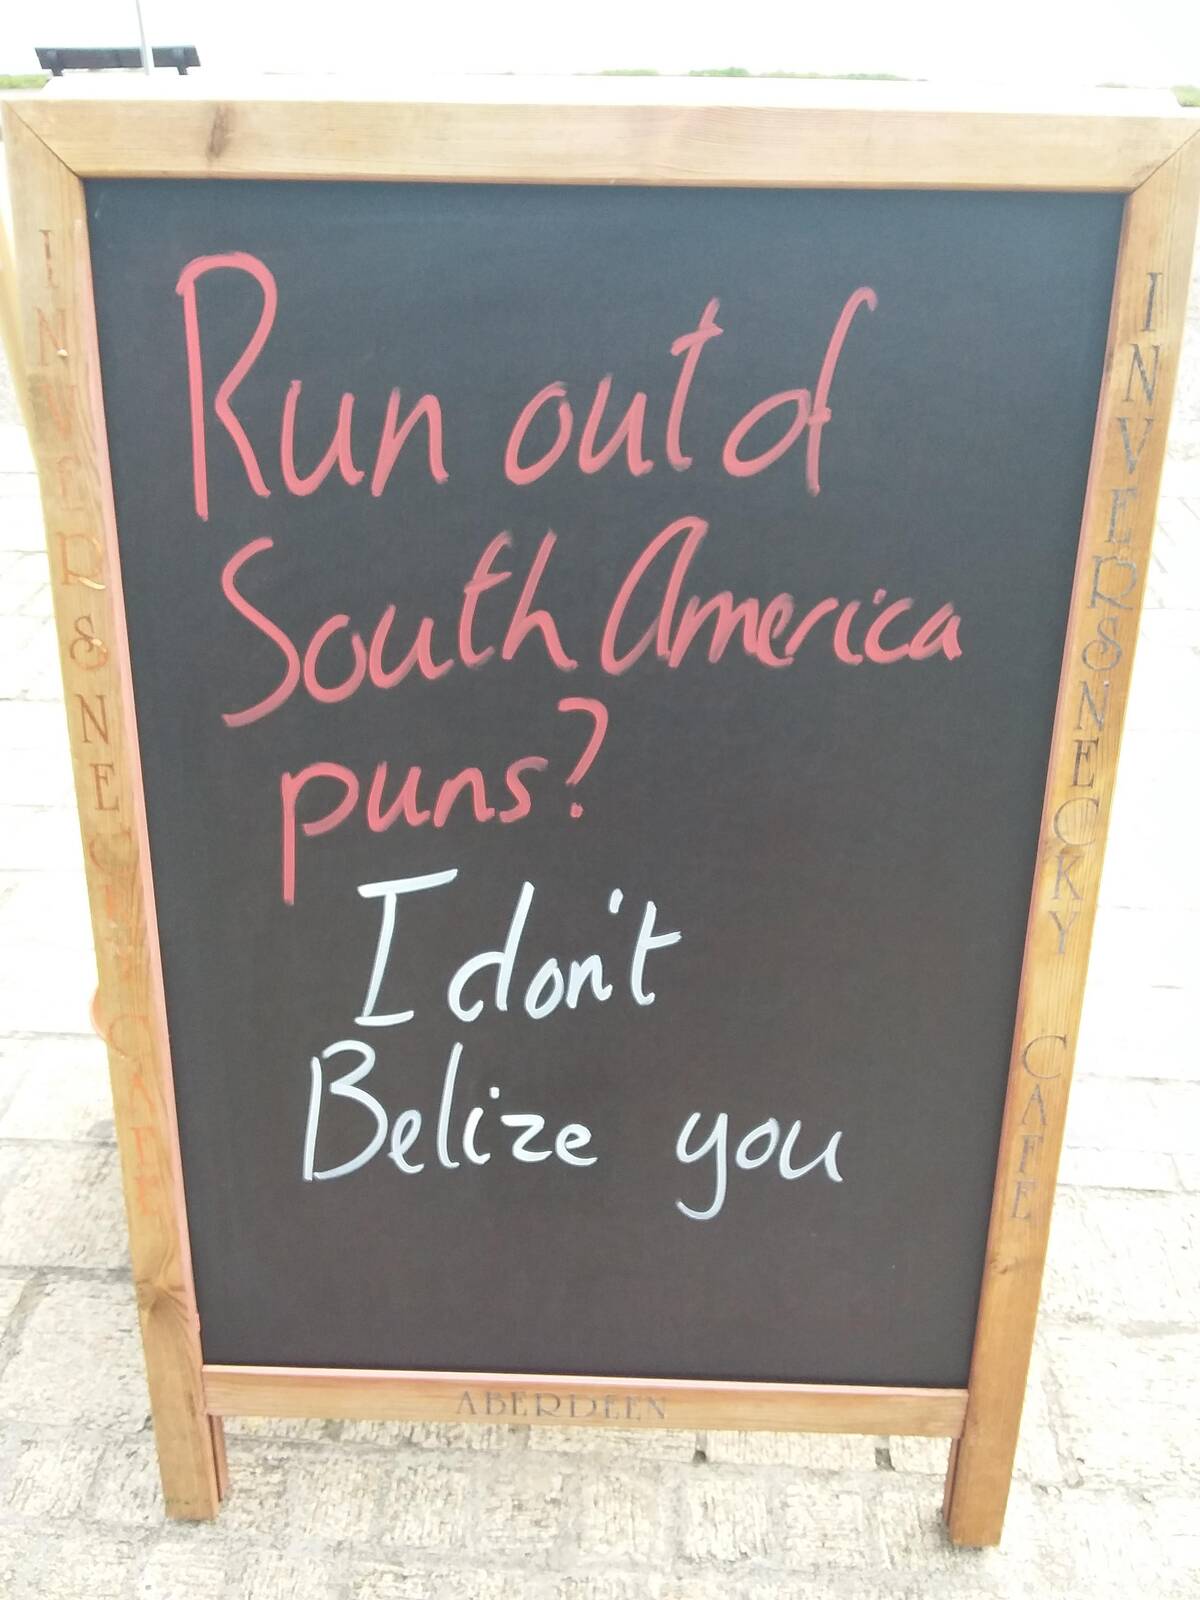 Run out of
South America
puns?
I don't
Belize you
INVERSNECKY CAFE
INVERSNECKY CAFE
ABERDEEN